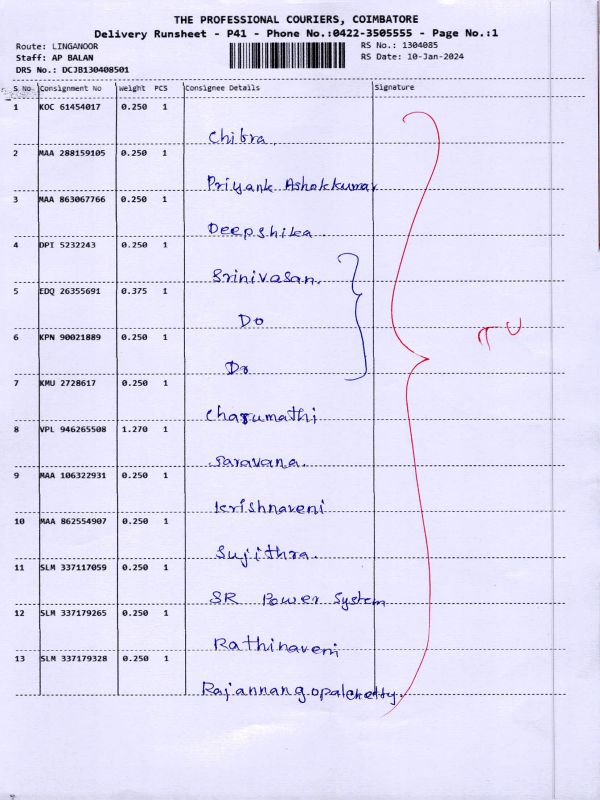 THE PROFESSIONAL COURIERS, COIMBATORE
Delivery Runsheet - P41 - Phone No.:0422-3505555 - Page No.:1
Route: LINGANOOR RS No.: 1304085
Staff: AP BALAN RS Date: 10-Jan-2024
DRS No.: DCJB130408501
S No Consignment No Weight PCS Consignee Details Signature
1 KOC 61454017 0.250 1
Chitra.
2 MAA 288159105 0.250 1
Priyank Ashokkumar
3 MAA 863067766 0.250 1
Deepshika.
4 DPI 5232243 0.250 1
Srinivasan.
5 EDQ 26355691 0.375 1
Do
6 KPN 90021889 0.250 1
Do
7 KMU 2728617 0.250 1
Charumathi
8 VPL 946265508 1.270 1
Saravana.
9 MAA 106322931 0.250 1
Krishnaveni
10 MAA 862554907 0.250 1
Sujithra.
11 SLM 337117059 0.250 1
SR Power System
12 SLM 337179265 0.250 1
Rathinaveni
13 SLM 337179328 0.250 1
Rajannangopalchetty.